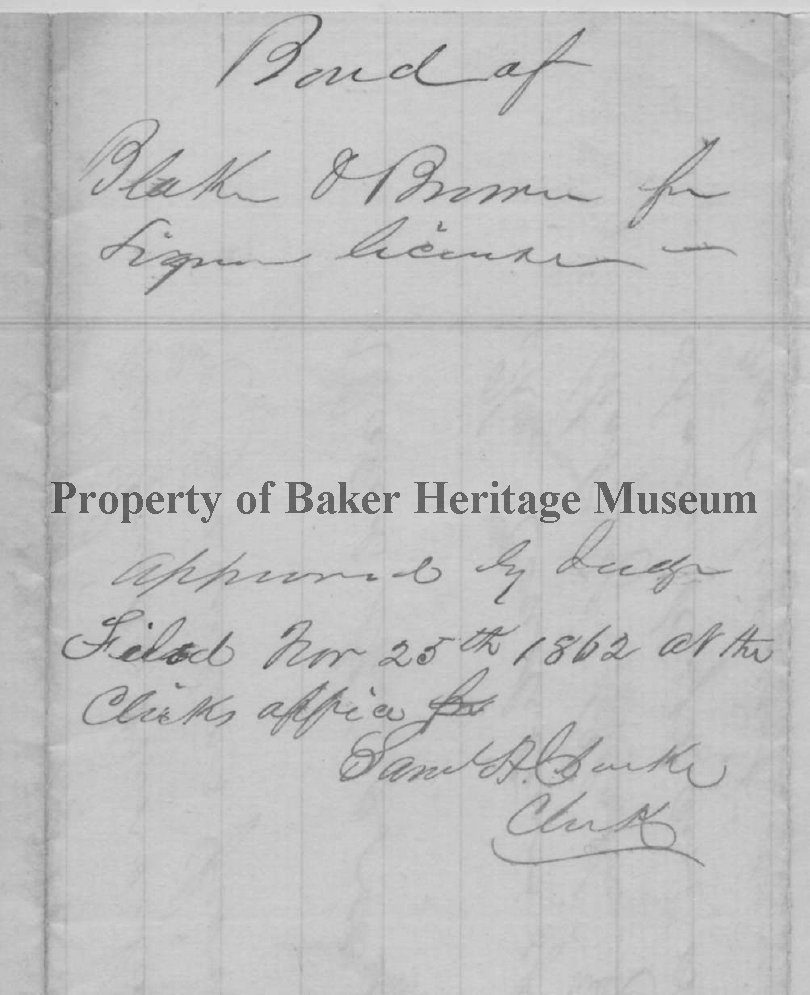 Bond of
Blake & Brown for
Liquor license —
Property of Baker Heritage Museum
Approved by Judge
Filed Nov 25th 1862 at the
Clerks office for
Saml A. Clarke
Clerk